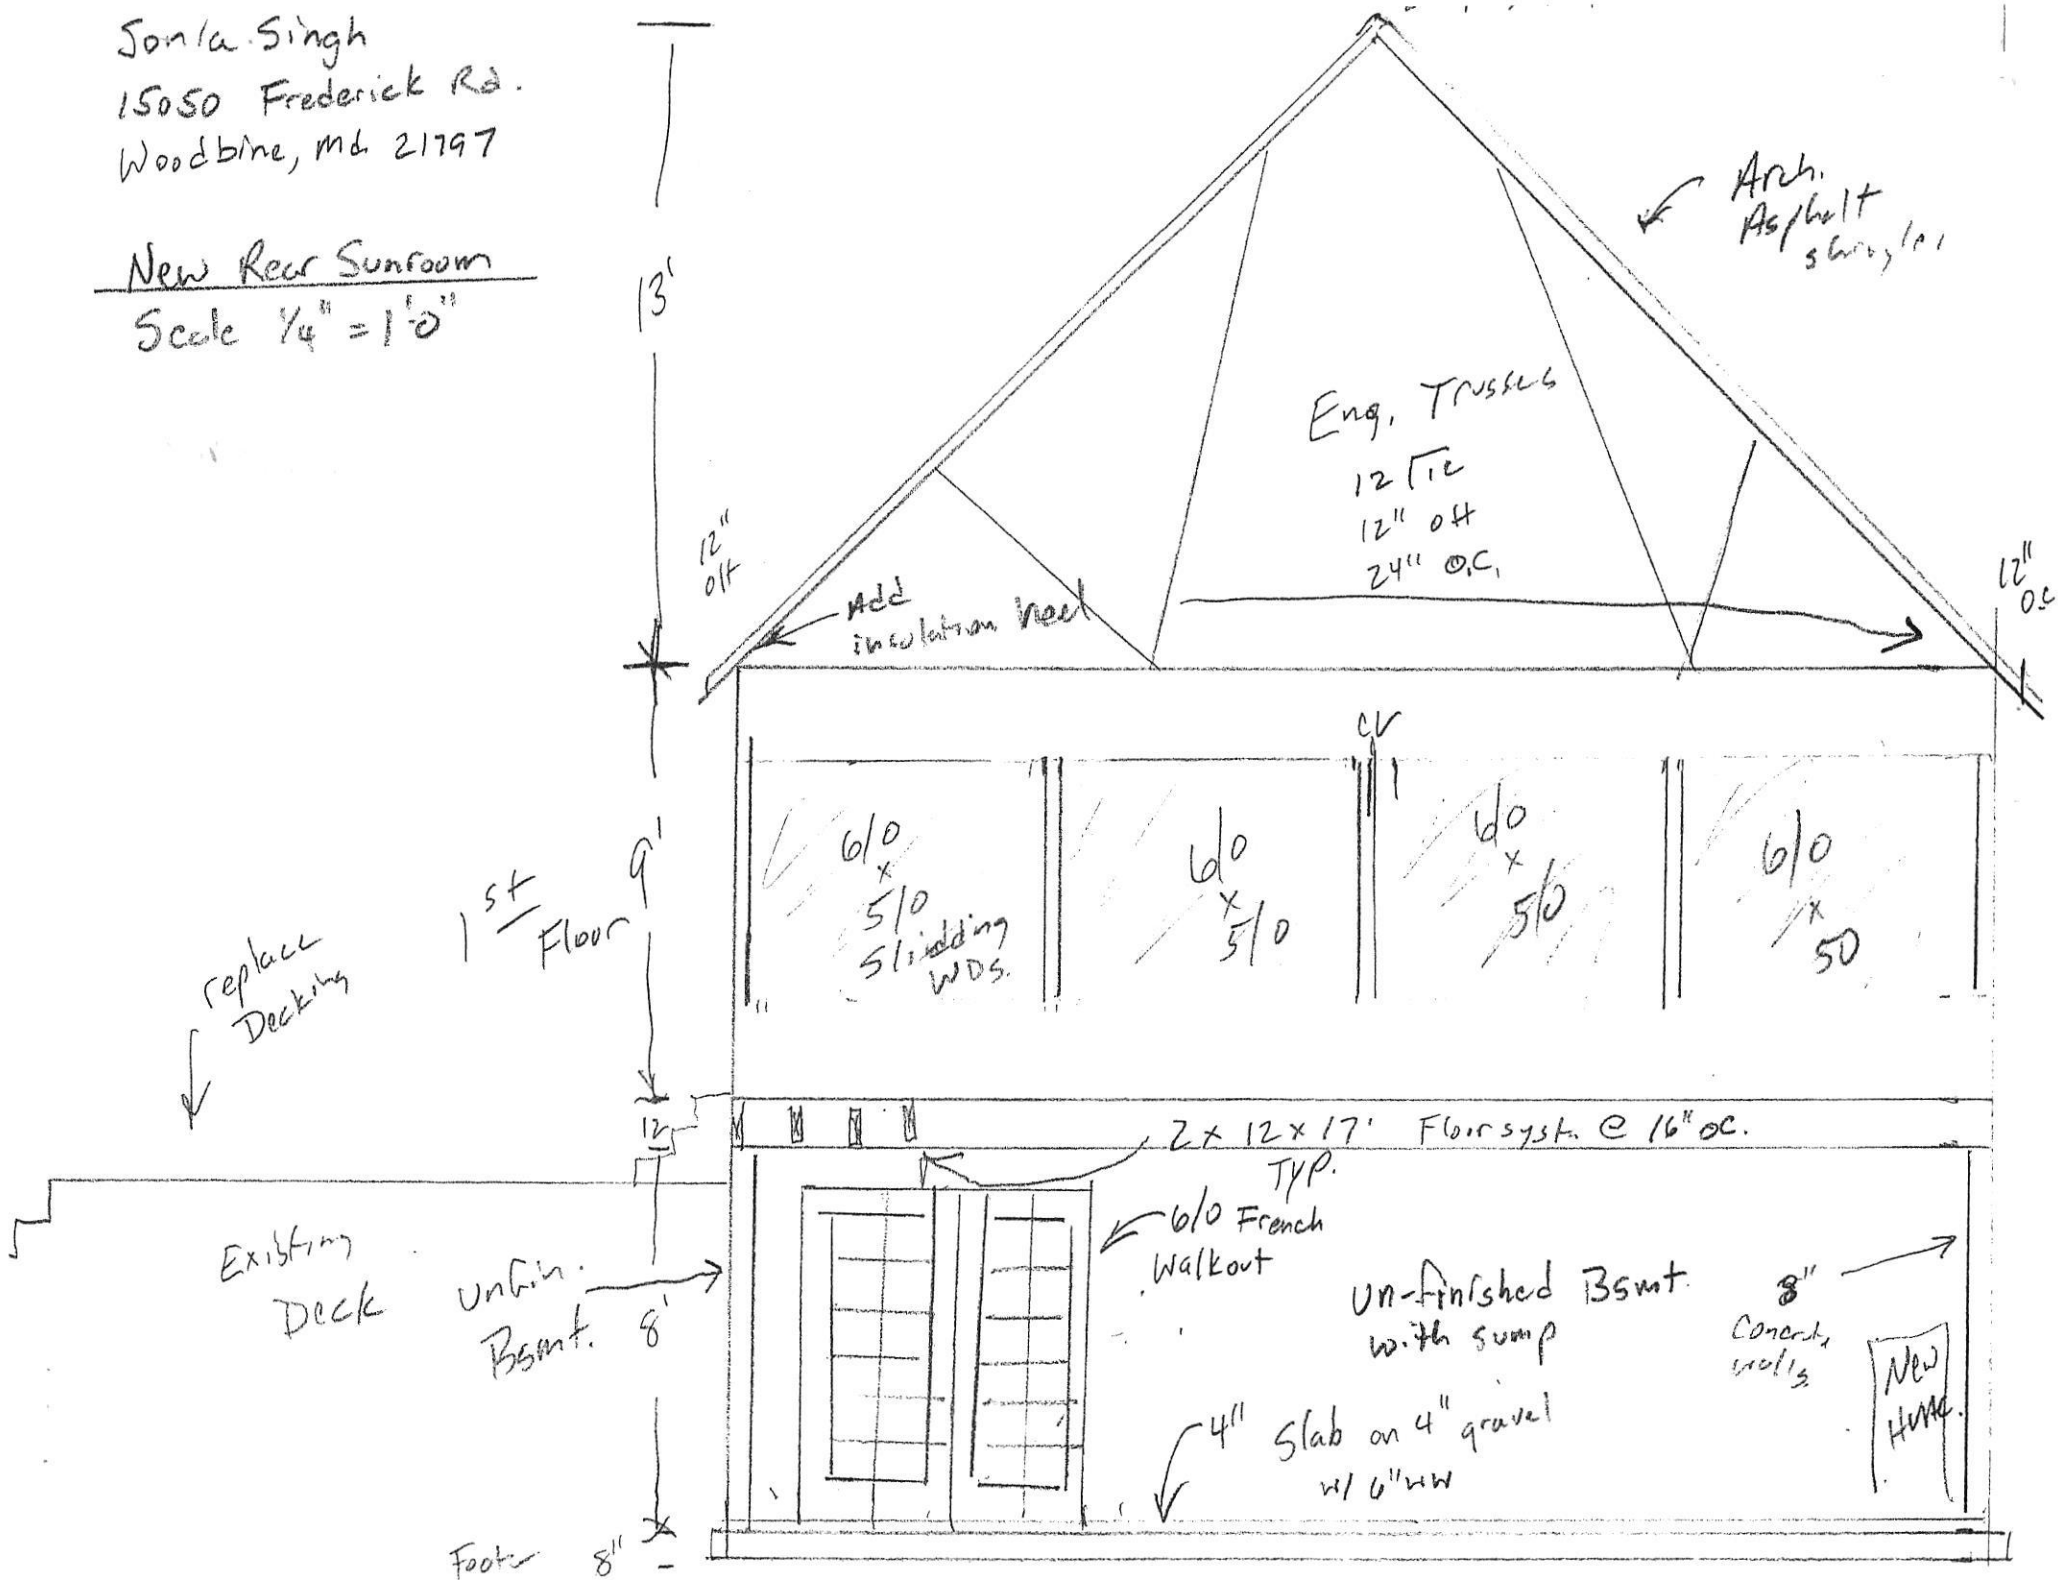 Sonia Singh
15050 Frederick Rd.
Woodbine, Md. 21797
New Rear Sunroom
Scale 1/4" = 1'-0"
13'
Arch.
Asphalt
shingles
Eng. Trusses
12 12
12" OH
24" O.C.
12"
OH
Add
insulation heel
12"
O.C
CV
6/0
x
5/0
Slidding
WDS.
6/0
x
5/0
6/0
x
5/0
6/0
x
50
9'
1st
Floor
replace
Decking
12
2 x 12 x 17' Floor syst. @ 16" OC.
TYP.
6/0 French
Walkout
Existing
Deck
unfin.
Bsmt.
8'
un-finished Bsmt.
with sump
8"
Concrete
walls
New
HVAC.
4" Slab on 4" gravel
w/ 6" ww
Footer 8"